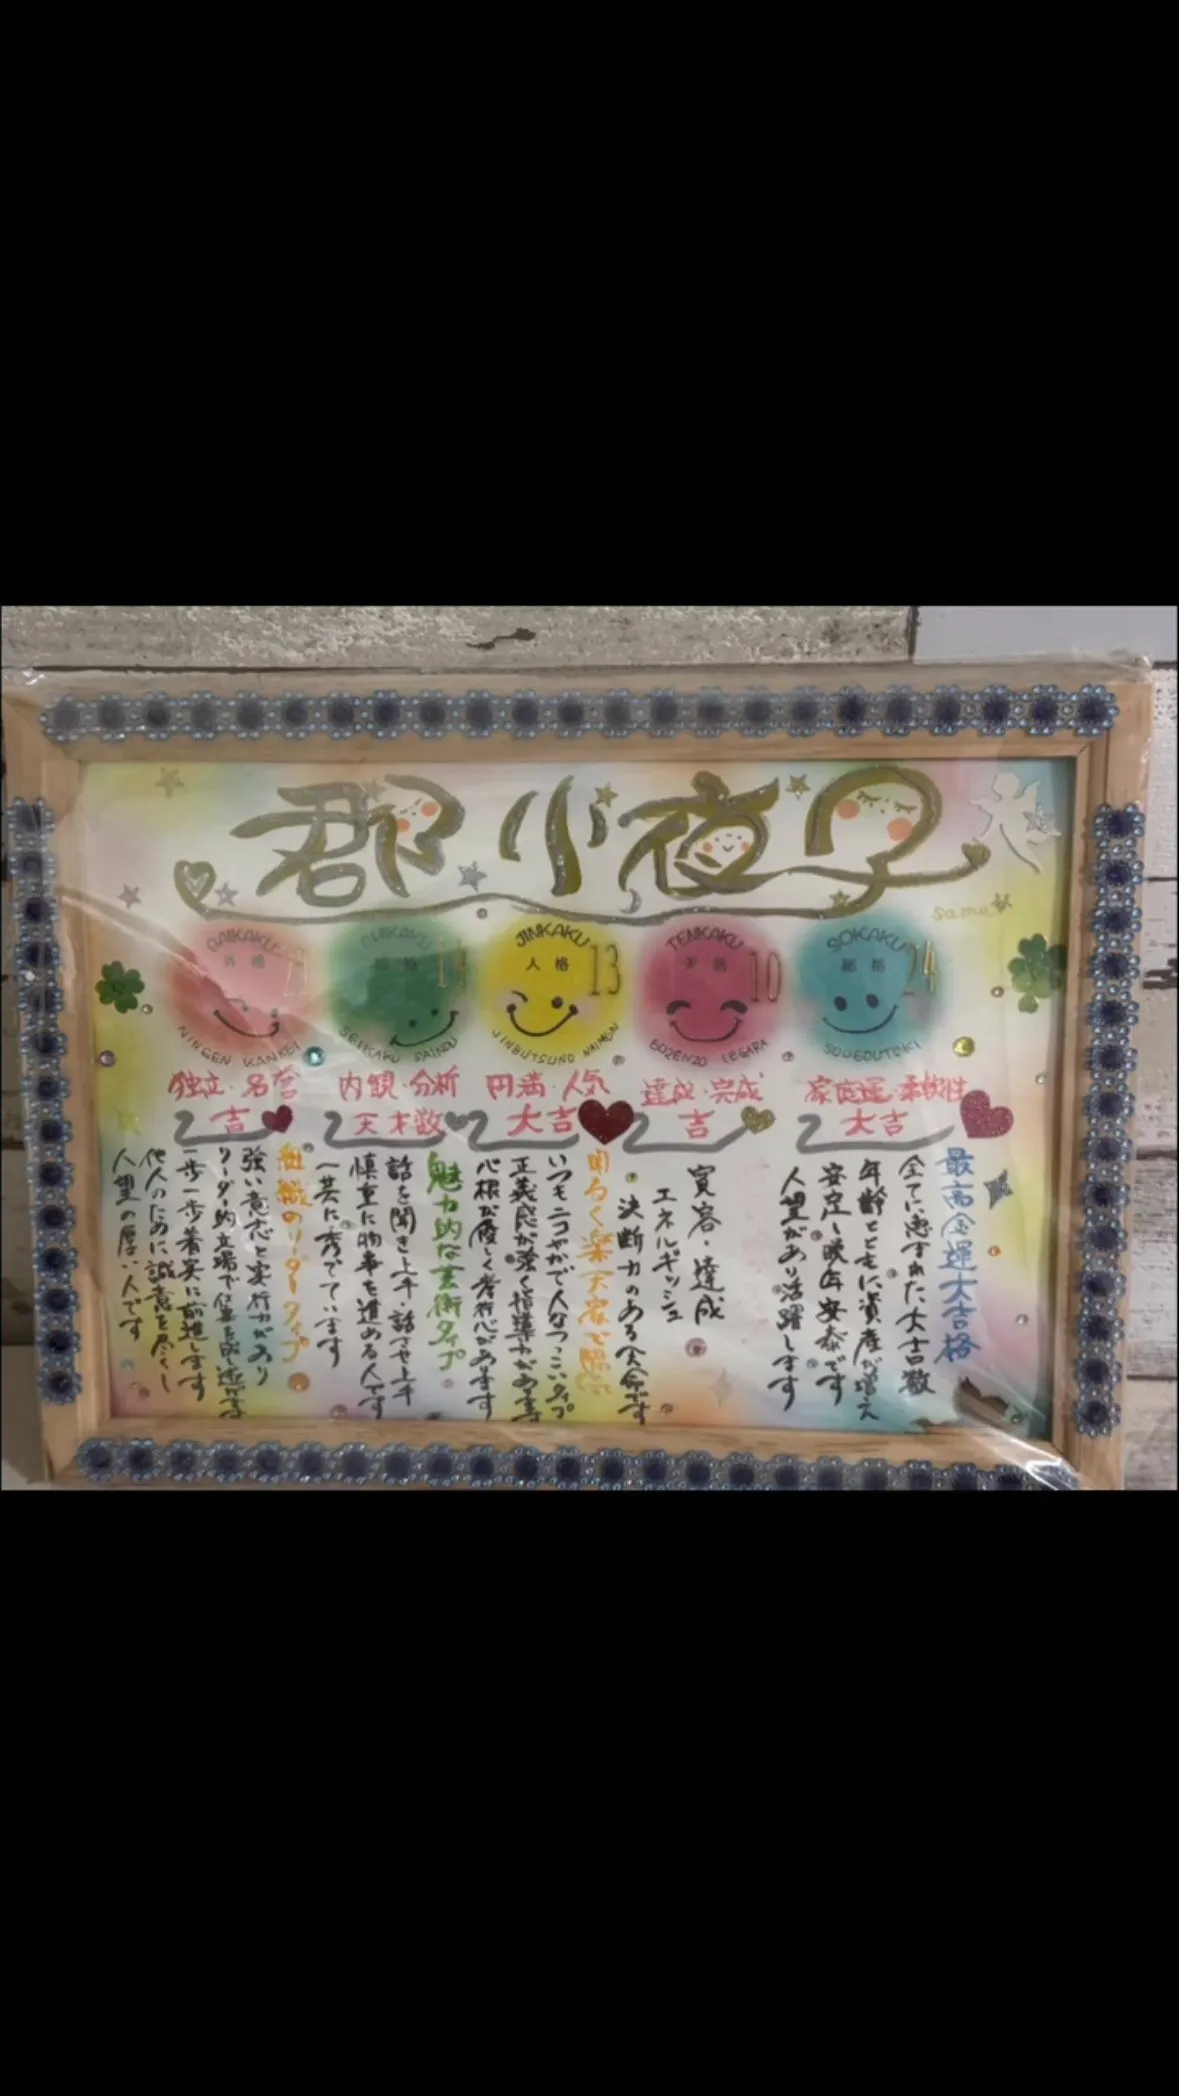 郡 小夜子
samu
GAIKAKU
外格
NINGEN KANKEI
独立・名誉
吉
CHIKAKU
地格
14
SEIKAKU SAINOU
内観・分析
天才数
JINKAKU
人格
13
JINBUTSUNO NAIMEN
円満・人気
大吉
TENKAKU
天格
10
GOZENZO
達成・完成
吉
SOKAKU
総格
24
家庭運・柔軟性
大吉
最高金運大吉格
全てに恵まれた大吉数
年齢とともに資産が増え
安定し晩年安泰です
人望があり活躍します
寛容・達成
エネルギッシュ
決断力のある天命です
明るく楽天家で
いつもニコやかで人なつっこいタイプ
正義感が強く指導力があります
心根が優しく孝行心があります
魅力的な芸術タイプ
話を聞き上手・話させ上手
慎重に物事を進める人です
一芸に秀でています
組織のリーダータイプ
強い意志と実行力があり
リーダー的立場で仕事を成し遂げます
一歩一歩着実に前進します
他人のために誠意を尽くし
人望の厚い人です